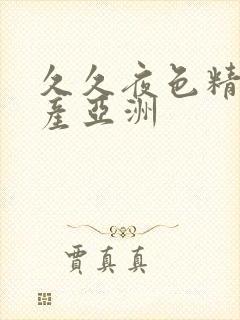 久久夜色精
産亞洲
賈真真